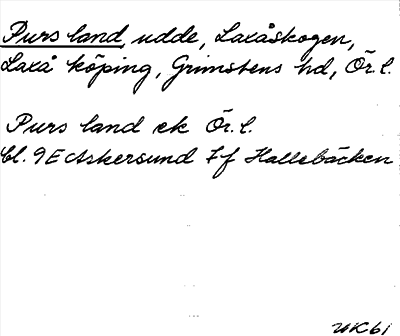 Purs land, udde, Laxåskogen,
Laxå köping, Grimstens hd, Ör. l.
Purs land ek Ör. l.
bl. 9E Askersund 7f Hallebäcken
UK 61